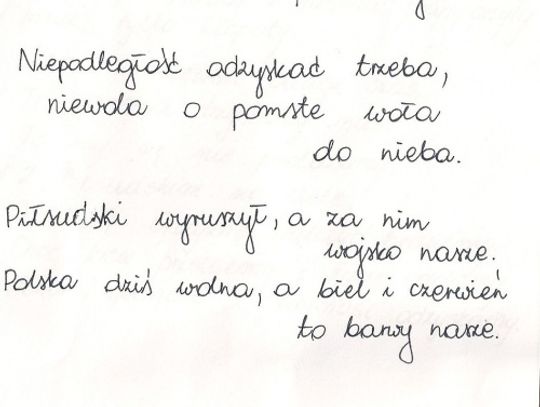 Niepodległość odzyskać trzeba,
niewola o pomste woła
do nieba.
Piłsudski wyruszył, a za nim
wojsko nasze.
Polska dziś wolna, a biel i czerwień
to barwy nasze.